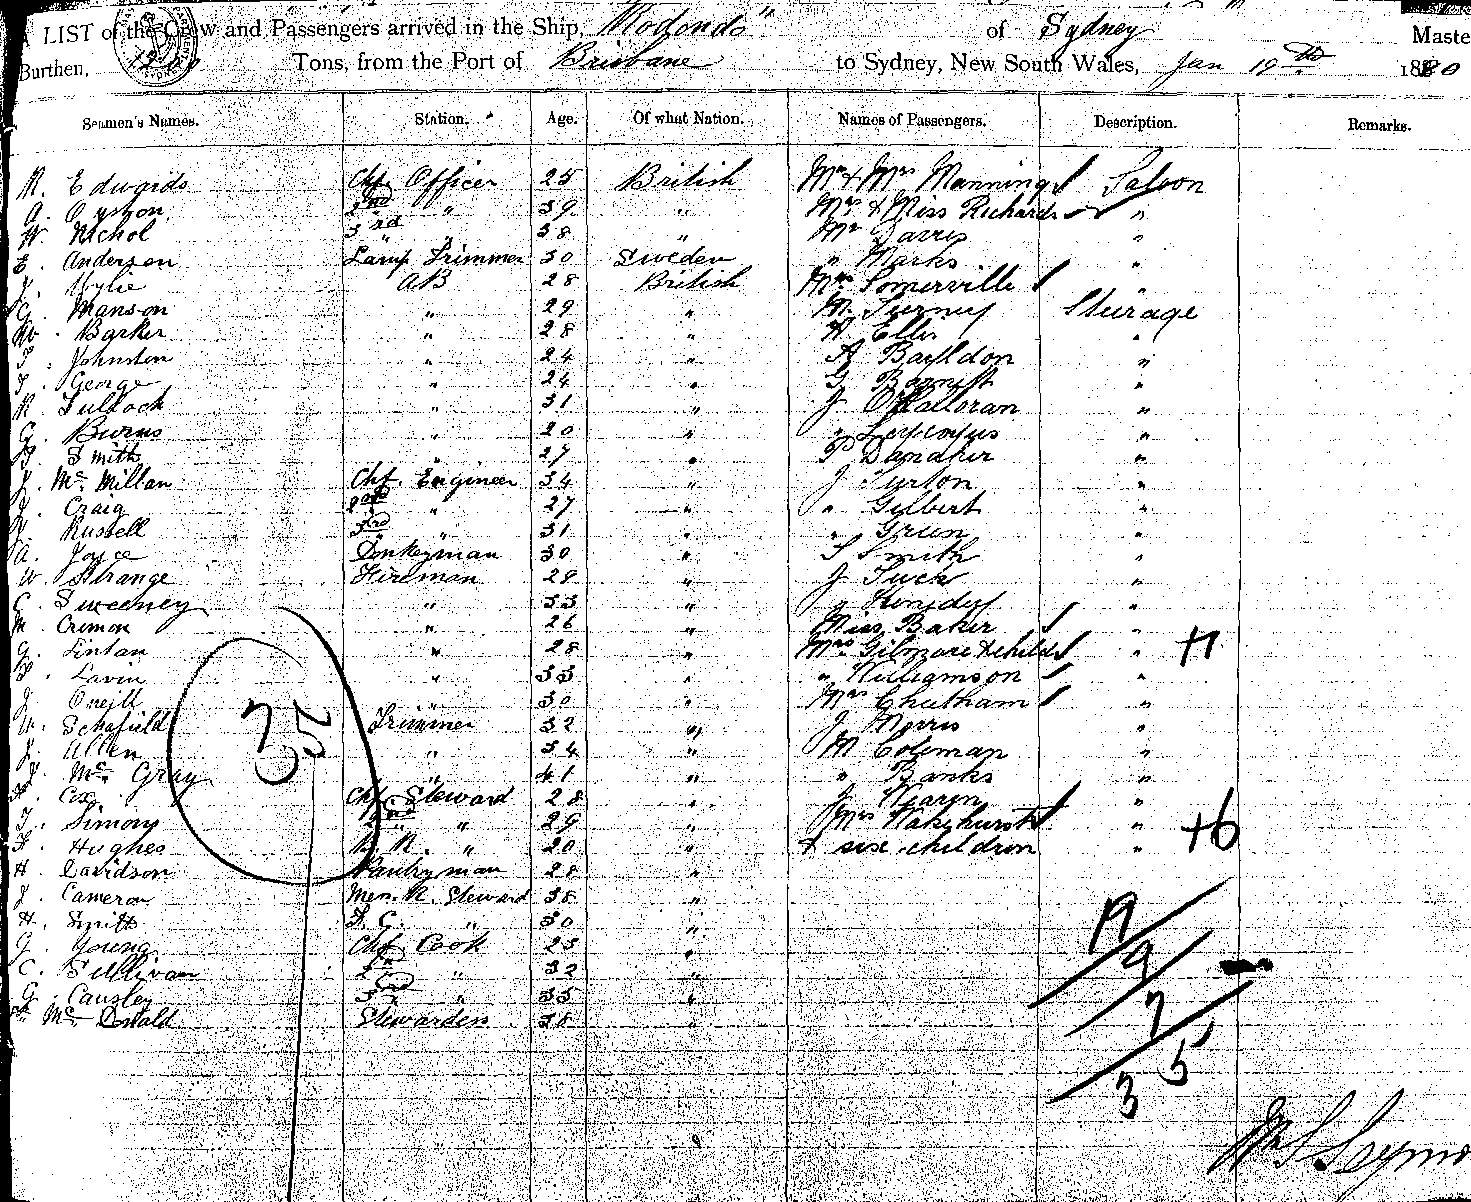 A LIST of the Crew and Passengers arrived in the Ship, "Rodondo" of Sydney Maste
Burthen, Tons, from the Port of Brisbane to Sydney, New South Wales, Jan 19th 1880
Seamen's Names. Station. Age. Of what Nation. Names of Passengers. Description. Remarks.
R. Edwards Chf Officer 25 British Mr & Mrs Manning Saloon
A. 2nd " 39 " Mrs & Miss Richards "
W. Nichol 3rd " 38 " Mr "
E. Anderson Lamp Trimmer 30 Sweden " Marks "
J. Wylie AB 28 British Mrs Somerville "
G. Manson " 29 " M. Tierney Sturage
W. Barker " 28 " A Ellis "
T. Johnston " 24 " Bayldon "
T. George " 24 " G "
R. Tullock " 31 " J O'Halloran "
G. Burns " 20 " "
Smith " 27 " P "
J. Mc Millan Chf. Engineer 34 " J Turton "
J. Craig 2nd " 27 " " Gilbert "
J. Russell 3rd " 31 " " Green "
A. Joyce Donkeyman 30 " S Smith "
W. Strange Fireman 29 " J Tuck "
C. Sweeney " 33 " " "
M. Cremon " 26 " Miss Baker "
G. Lintan " 28 " Mrs Gilmore & child " +1
Lavin " 33 " " Williamson "
J. Oneill " 30 " Mrs Cheetham "
W. Schofield Trimmer 32 " J Morris "
J. Allen " 34 " M Coleman "
J. Mc Gray " 41 " " Banks "
Cox Chf. Steward 28 " J "
T. Simons 2nd " 29 " Mrs Wakehurst " +6
Hughes B. R. " 20 " & six children "
H. Davidson Pantryman 28 "
J. Cameron Mess. R. Steward 38 "
H. Smith " 30 "
G. Young Chf Cook 25 "
C. Sullivan 2nd " 32 "
G. Causley 3rd " 35 "
Mc Donald Stewardess 38 "
35
19
9
7
5
3